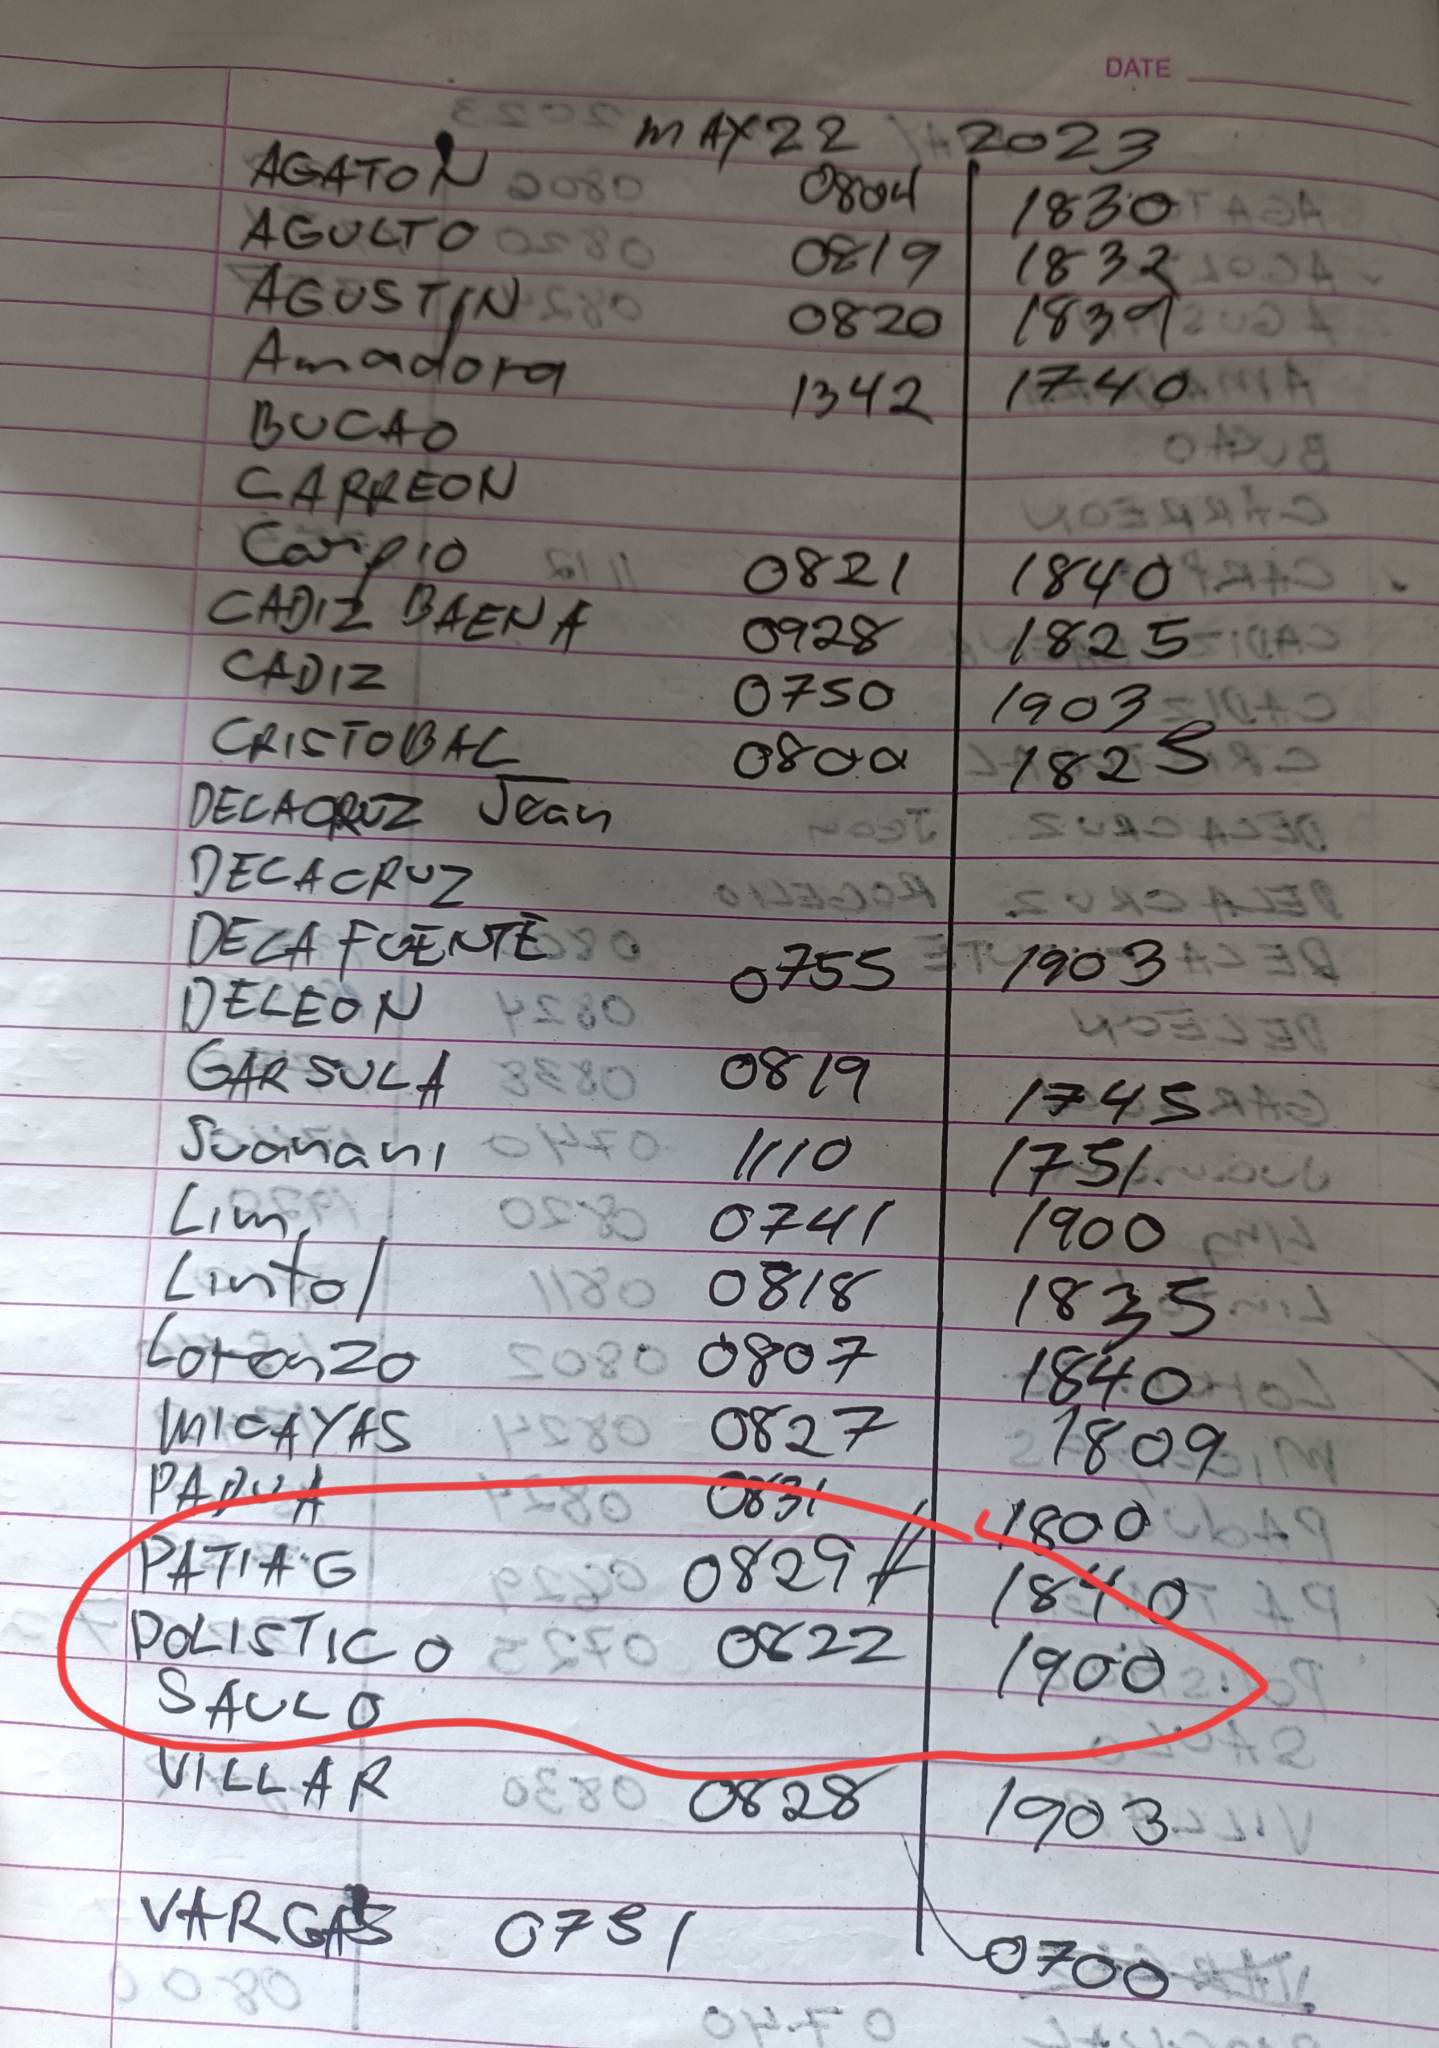 DATE
MAY 22 2023
AGATON 0804 1830
AGULTO 0819 1832
AGUSTIN 0820 1839
Amadora 1342 1740
BUCAO
CARREON
Carpio 0821 1840
CADIZ BAENA 0928 1825
CADIZ 0750 1903
CRISTOBAL 0800 1825
DELACRUZ Jean
DELACRUZ
DELA FUENTE 0755 1903
DELEON
GARSULA 0819 1745
Juanani 1110 1751
Lim, 0741 1900
Lintol 0818 1835
Lorenzo 0807 1840
MICAYAS 0827 1809
PADUA 0831 1800
PATIAG 0829 1840
POLISTICO 0822 1900
SAULO
VILLAR 0828 1903
VARGAS 0731 0700